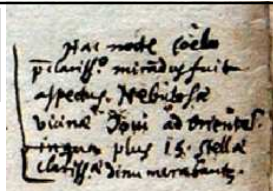 Hac nocte Coelo
p clariss.o mirādus fuit
aspectus. Nebulosæ
vicinæ Iovi ad oriental.
plus 15. stellæ
clarissæ dinumerabantr.